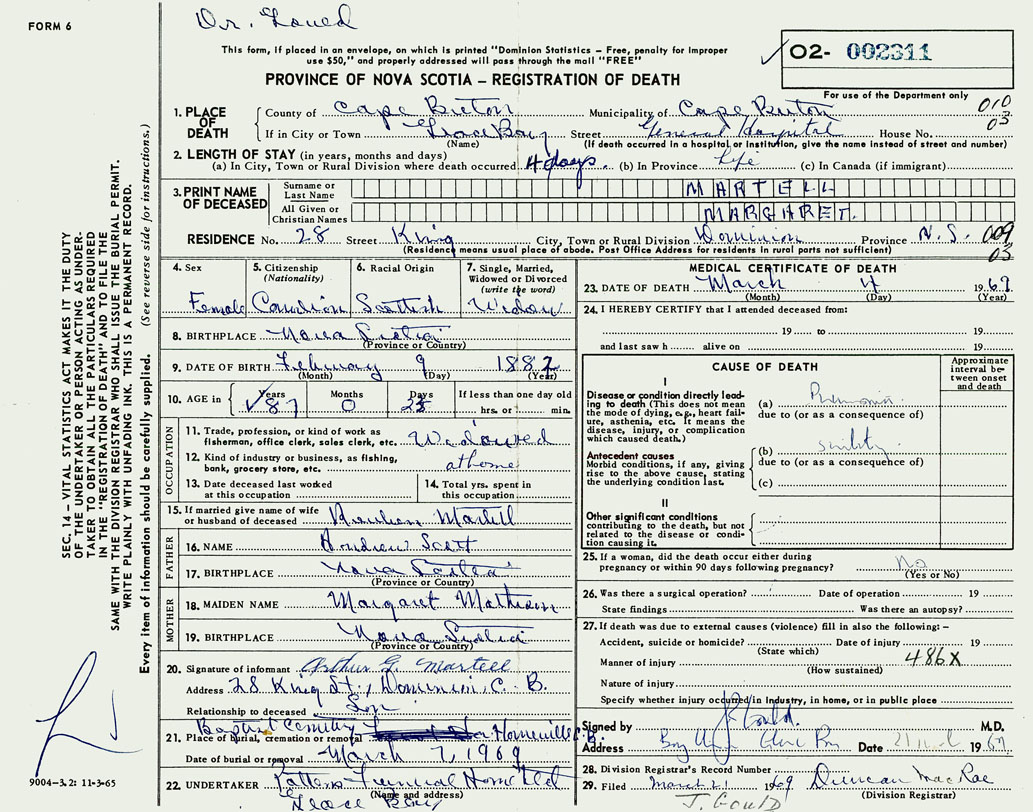 FORM 6
Dr. Gould
This form, if placed in an envelope, on which is printed "Dominion Statistics – Free, penalty for improper
use $50," and properly addressed will pass through the mail "FREE"
PROVINCE OF NOVA SCOTIA – REGISTRATION OF DEATH
O2- 002311
For use of the Department only
010
03
1. PLACE OF DEATH County of Cape Breton Municipality of Cape Breton
If in City or Town Glace Bay Street General Hospital House No.
(Name) (If death occurred in a hospital or institution, give the name instead of street and number)
2. LENGTH OF STAY (in years, months and days)
(a) In City, Town or Rural Division where death occurred 4 days. (b) In Province Life (c) In Canada (if immigrant)
3. PRINT NAME OF DECEASED
Surname or Last Name MARTELL
All Given or Christian Names MARGARET.
RESIDENCE No. 28 Street King City, Town or Rural Division Dominion Province N.S. 009
03
(Residence means usual place of abode. Post Office Address for residents in rural parts not sufficient)
4. Sex Female
5. Citizenship (Nationality) Canadian
6. Racial Origin Scottish
7. Single, Married, Widowed or Divorced (write the word) Widow
8. BIRTHPLACE Nova Scotia
(Province or Country)
9. DATE OF BIRTH February 9 1882
(Month) (Day) (Year)
10. AGE in Years 87 Months 0 Days 25 If less than one day old hrs. or min.
OCCUPATION
11. Trade, profession or kind of work as fisherman, office clerk, sales clerk, etc. Widowed
12. Kind of industry or business, as fishing, bank, grocery store, etc. at home
13. Date deceased last worked at this occupation
14. Total yrs. spent in this occupation
15. If married give name of wife or husband of deceased Reuben Martell
FATHER
16. NAME Andrew Scott
17. BIRTHPLACE Nova Scotia
(Province or Country)
MOTHER
18. MAIDEN NAME Margaret Matheson
19. BIRTHPLACE Nova Scotia
(Province or Country)
20. Signature of informant Arthur G. Martell
Address 28 King St., Dominion, C. B.
Relationship to deceased Son
21. Place of burial, cremation or removal Baptist Cemetery Homeville C.B.
Date of burial or removal March 7, 1969
22. UNDERTAKER Pattens Funeral Home Ltd
(Name and address)
Glace Bay
MEDICAL CERTIFICATE OF DEATH
23. DATE OF DEATH March 4 1969
(Month) (Day) (Year)
24. I HEREBY CERTIFY that I attended deceased from:
19 to 19
and last saw h alive on 19
CAUSE OF DEATH
Approximate interval between onset and death
I
Disease or condition directly leading to death (This does not mean the mode of dying, e.g., heart failure, asthenia, etc. It means the disease, injury, or complication which caused death.)
(a) Pneumonia
due to (or as a consequence of)
Antecedent causes
Morbid conditions, if any, giving rise to the above cause, stating the underlying condition last.
(b) senility
due to (or as a consequence of)
(c)
II
Other significant conditions
contributing to the death, but not related to the disease or condition causing it.
25. If a woman, did the death occur either during pregnancy or within 90 days following pregnancy? No
(Yes or No)
26. Was there a surgical operation? Date of operation 19
State findings Was there an autopsy?
27. If death was due to external causes (violence) fill in also the following:–
Accident, suicide or homicide? Date of injury 19
(State which)
Manner of injury 486X
(How sustained)
Nature of injury
Specify whether injury occurred in industry, in home, or in public place
Signed by J. Gould. M.D.
Address Date 21 1969
28. Division Registrar's Record Number
29. Filed March 21 1969 Duncan MacRae
(Division Registrar)
J. Gould
SEC. 14 – VITAL STATISTICS ACT MAKES IT THE DUTY
OF THE UNDERTAKER OR PERSON ACTING AS UNDER-
TAKER TO OBTAIN ALL THE PARTICULARS REQUIRED
IN THE "REGISTRATION OF DEATH" AND TO FILE THE
SAME WITH THE DIVISION REGISTRAR WHO SHALL ISSUE THE BURIAL PERMIT.
WRITE PLAINLY WITH UNFADING INK. THIS IS A PERMANENT RECORD.
Every item of information should be carefully supplied. (See reverse side for instructions.)
9004-3.2: 11-3-65